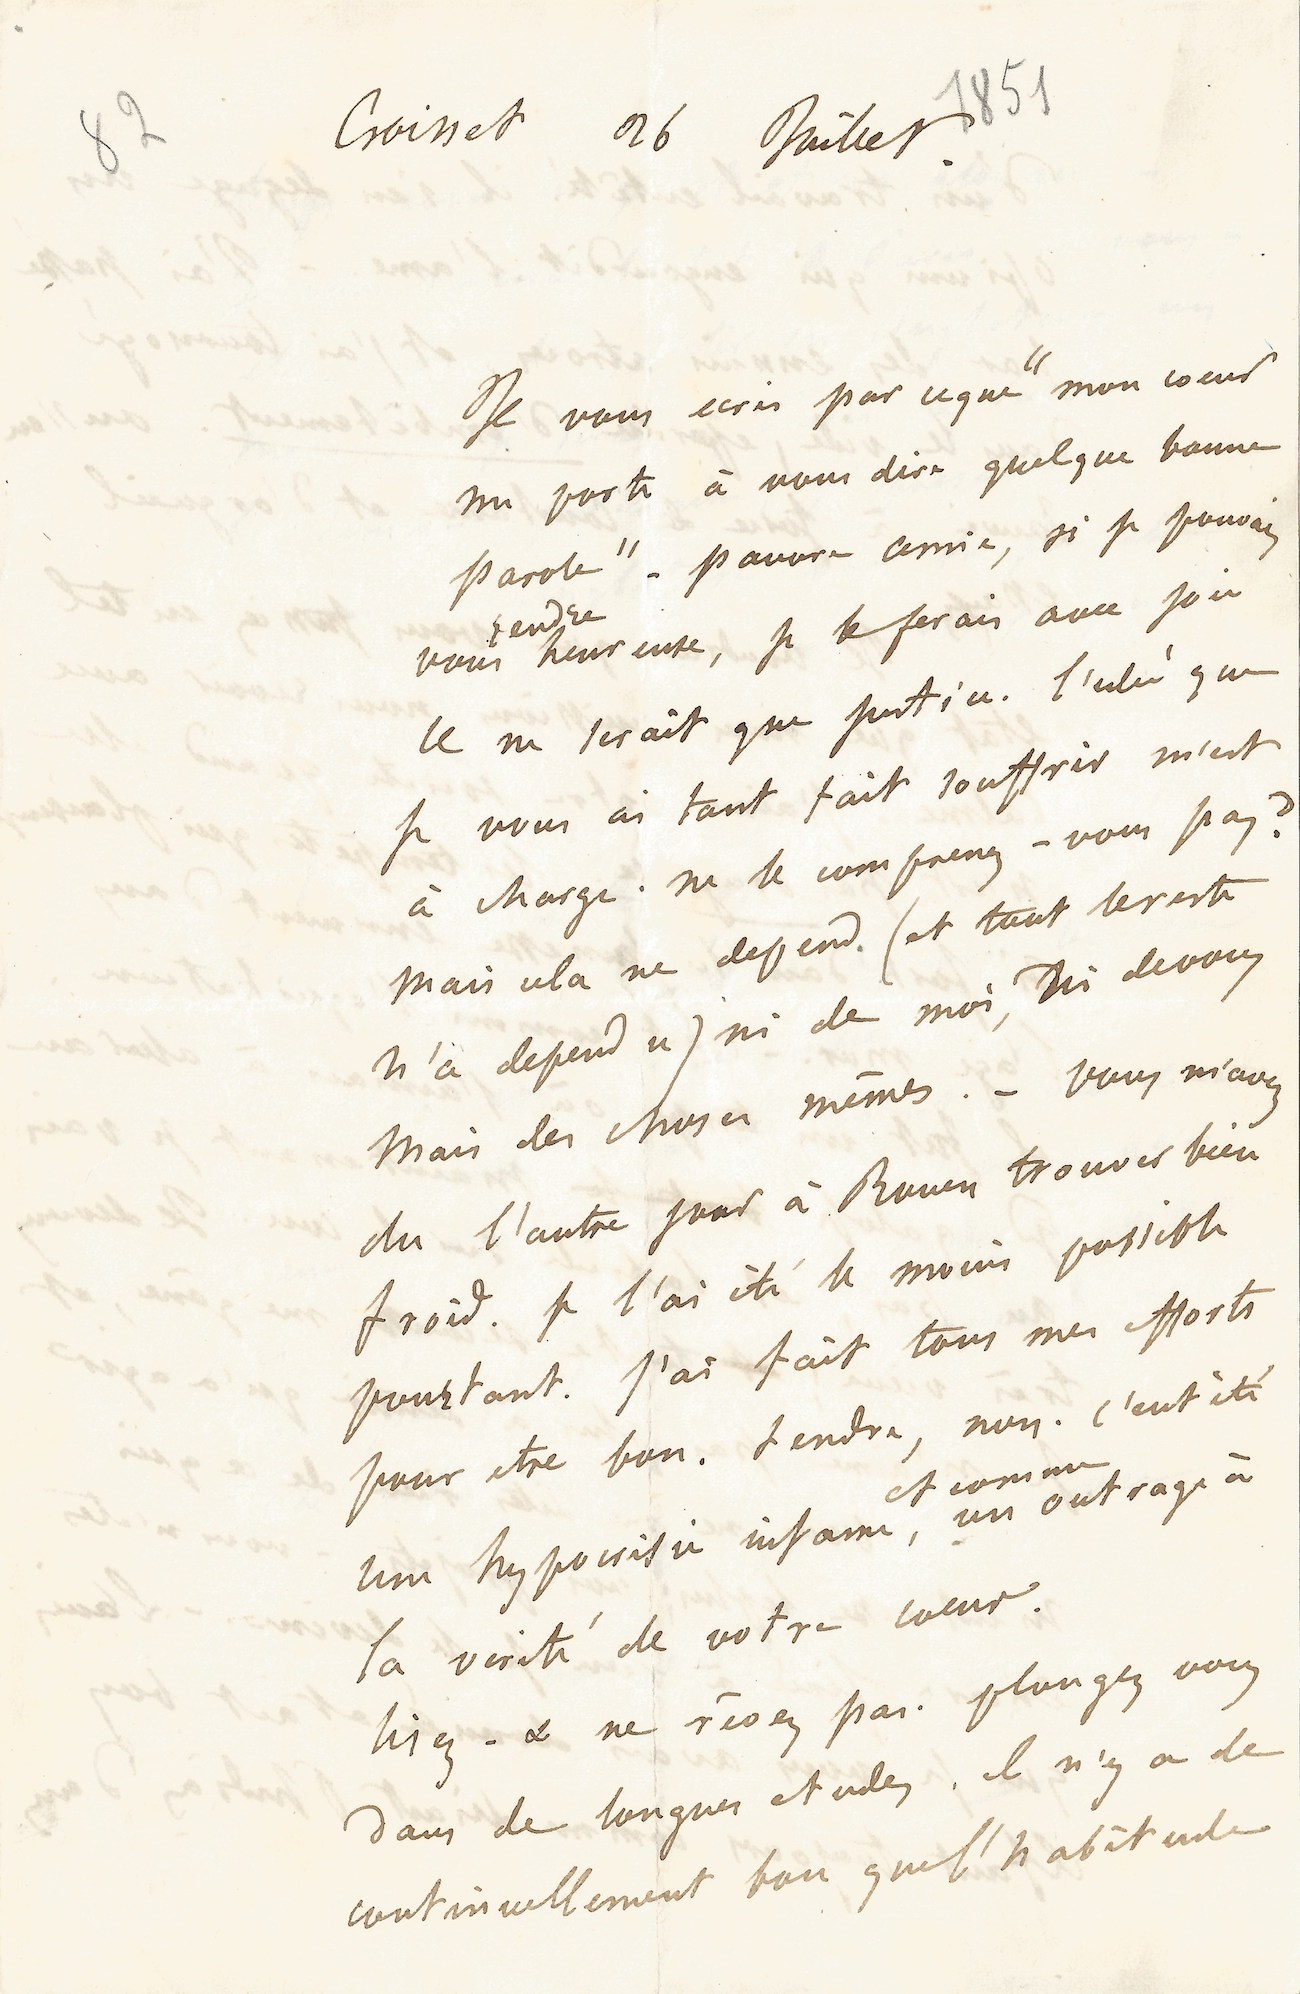 82
Croisset 26 Juillet. 1851
Je vous ecris par ceque "mon coeur
me porte à vous dire quelque bonne
parole" - pauvre amie, si je pouvais
rendre
vous heureuse, je le ferais avec joie
Ce ne serait que justice. l'idée que
je vous ai tant fait souffrir m'est
à charge. ne le comprenez-vous pas?
Mais cela ne depend. (et tout le reste
n'a dependu) ni de moi, ni de vous
Mais des choses mêmes. - vous m'avez
du l'autre jour à Rouen trouver bien
froid. je l'ai été le moins possible
pourtant. j'ai fait tous mes efforts
pour etre bon. tendre, non. c'eut été
et comme
une hypocrisie infame, un outrage à
la verité de votre coeur.
Lisez - & ne rêvez pas. plongez vous
Dans de longues etudes. il n'y a de
continuellement bon que l'habitude